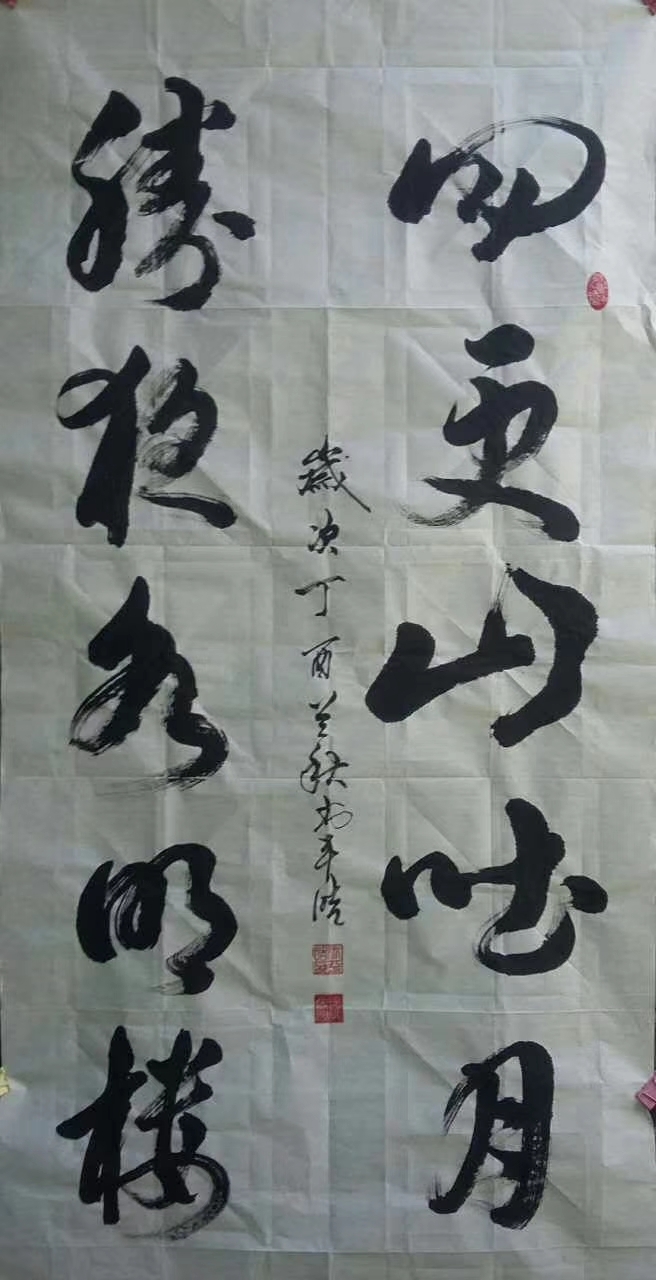 四更山吐月
残夜水明楼
歲次丁酉兰秋书